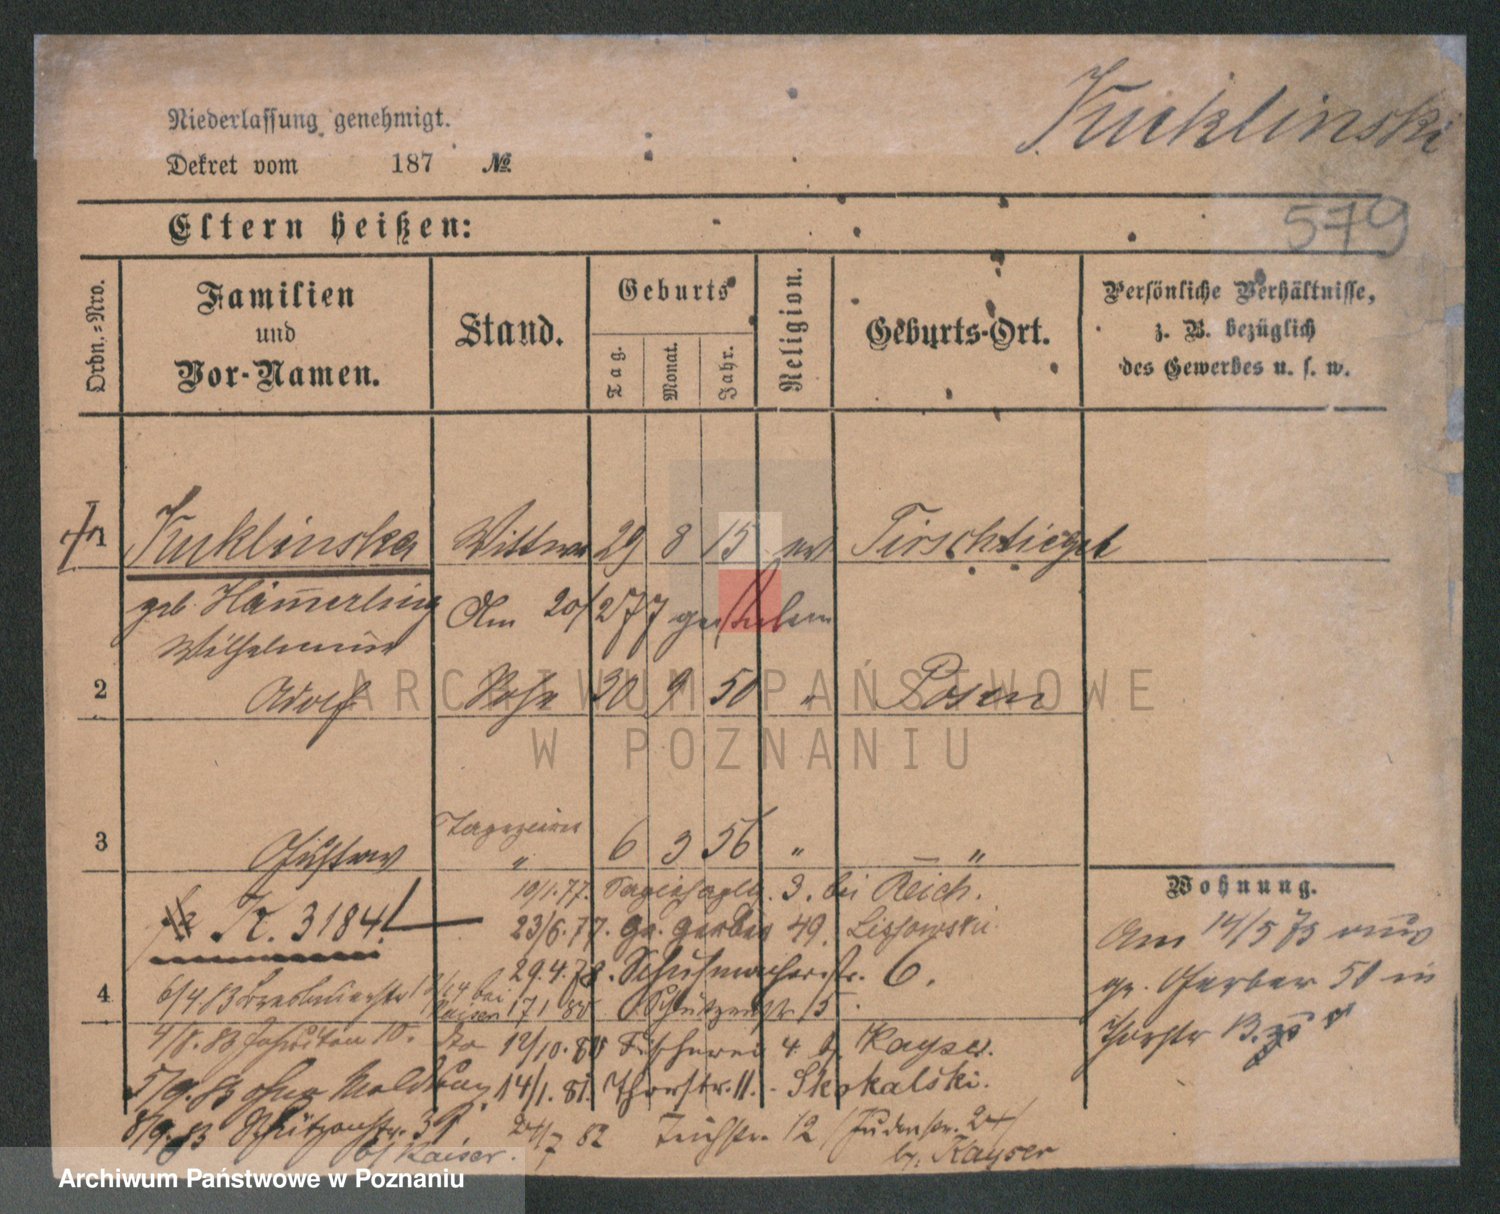 Kucklinski
Niederlassung genehmigt.
Dekret vom 187 №
579
Eltern heißen:
Ordn.-Nro.
Familien
und
Vor-Namen.
Stand.
Geburts
Tag.
Monat.
Jahr.
Religion.
Geburts-Ort.
Persönliche Verhältnisse,
z. B. bezüglich
des Gewerbes u. s. w.
1 Kucklinska Wittwe 29 8 15 ev Tirschtiegel
geb Hämerling Am 20/2 77 gestorben
Wilhelmine
2 Adolf Sohn 30 9 50 " Posen
3 Gustav " 6 3 56 " — "
Wohnung.
10/1.77. 3. bei Reich.
Kr. 3184!
23/6.77. gr. Gerber 49. Lissowski
Am 14/5 75 aus
29.4.78. Schuhmacherstr. 6.
gr. Gerber 51 in
4
6/4 83 bei Kaiser 17 1 80 Schützenstr 15.
Thorstr 13.
4/8.83 Jesuiten 10. 12/10.80 Fischerei 4 b. Kayser.
5/9.83 ohne Meldung. 14/1.81. Thorstr. 11. - Skokalski.
8/9.83 Schützenstr. 31. 24/7 82 Teichstr. 12 / Judenstr. 24/
b/ Kaiser. b. Kayser
ARCHIWUM PAŃSTWOWE
W POZNANIU
Archiwum Państwowe w Poznaniu